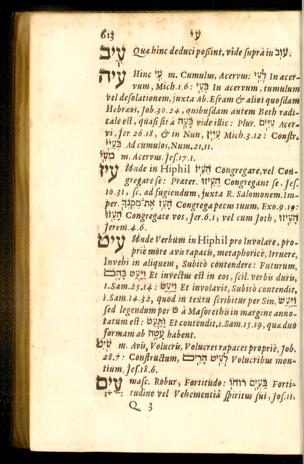 612 עי
עיב Quæ hinc deduci possint, vide suprà in עוב.
עיה Hinc עי m. Cumulus, Acervus: לעי In acer-
vum, Mich. 1. 6: בעי In acervum, tumulum
vel desolationem, juxta Ab. Esram & alios quosdam
Hebræos, Job. 30. 24, quibusdam autem Beth radi-
cale est, quasi sit à בעה vide illic: Plur. עיים Acer-
vi, Jer. 26. 18, & in Nun, עיין Mich. 3. 12: Constr.
Ad cumulos, Num. 21, 11.
מעי m. Acervus Jes. 17. 1.
עיז Unde in Hiphil העיז Congregare, vel Con-
gregare se: Præter. העיזו Congregant se, Jes.
10. 31, sc. ad fugiendum, juxta R. Salomonem. Im-
per. העז את מקנך Congrega pecus tuum, Exo. 9. 19:
העיזו Congregate vos, Jer. 6. 1, vel cum Josb, העיזו
Jerem. 4. 6.
עיט Unde Verbum in Hiphil pro Involare, pro-
priè more avis rapacis, metaphoricè, Irruere,
Invehi in aliquem, Subitò contendere: Futurum,
ויעט בהם Et invectus est in eos, scil. verbis duris,
1. Sam. 25. 14: ויעט Et involavit, Subitò contendit,
1. Sam. 14. 32, quod in textu scribitur per Sin, ויעש
sed legendum per ט à Masorethis in margine anno-
tatum est: ותעט Et contendit, 1. Sam. 15. 19, qua duo
formam עטה ab habent.
עיט m. Avis, Volucris, Volucres rapaces propriè, Job.
28. 7: Constructum, לעיט הרים Volucribus mon-
tium, Jes. 18. 6.
עים masc. Robur, Fortitudo: בעים רוחו Forti-
tudine vel Vehementiâ spiritus sui, Jes. 11.
Q 3